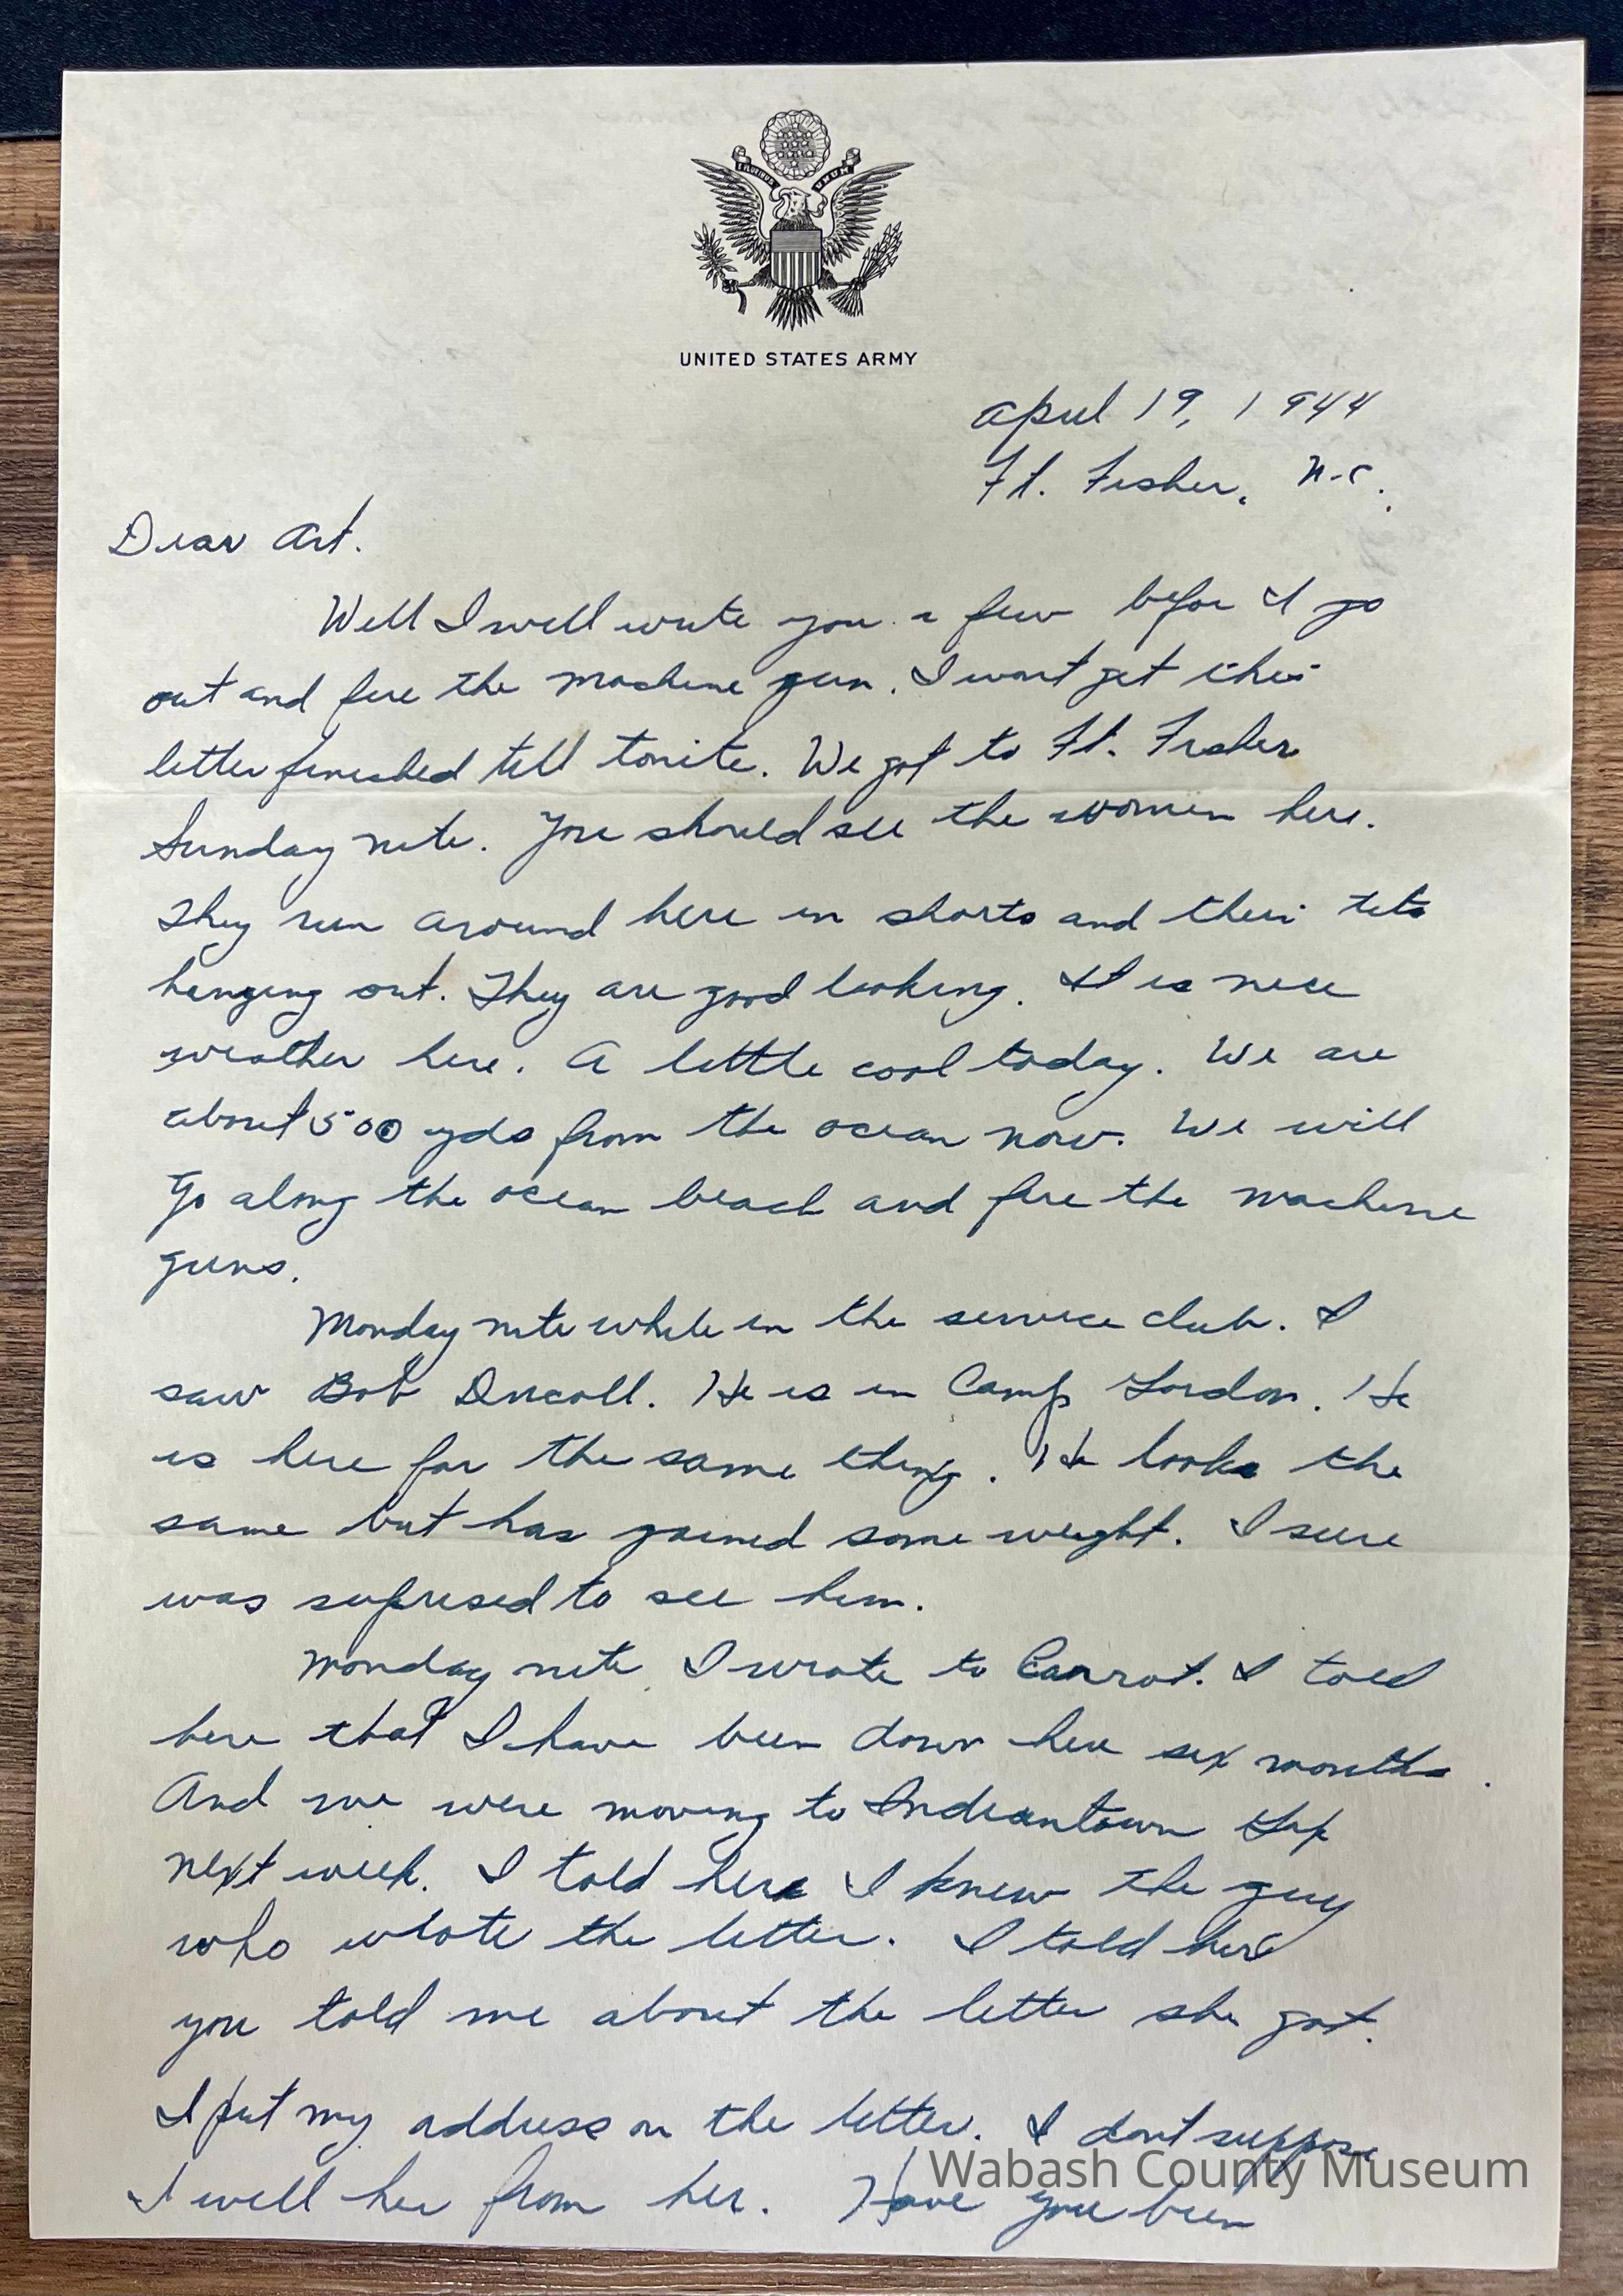 E PLURIBUS UNUM
UNITED STATES ARMY
April 19, 1944
Ft. Fisher, N.C.
Dear Art.
Well I will write you a few befor I go
out and fire the machine gun. I wont get this
letter finished till tonite. We got to Ft. Fisher
Sunday nite. You should see the women here.
They run around here in shorts and their tits
hanging out. They are good looking. It is nice
weather here. A little cool today. We are
about 500 yds from the ocean now. We will
go along the ocean beach and fire the machine
guns.
Monday nite while in the service club. I
saw Bob Driscoll. He is in Camp Gordon. He
is here for the same thing. He looks the
same but has gained some weight. I sure
was suprised to see him.
Monday nite I wrote to Carrot. I told
here that I have been down here six months.
And we were moving to Indiantown Gap
next week. I told here I knew the guy
who wrote the letter. I told her
you told me about the letter she got.
I put my address on the letter. I dont suppose
I will her from her. Have you been
Wabash County Museum